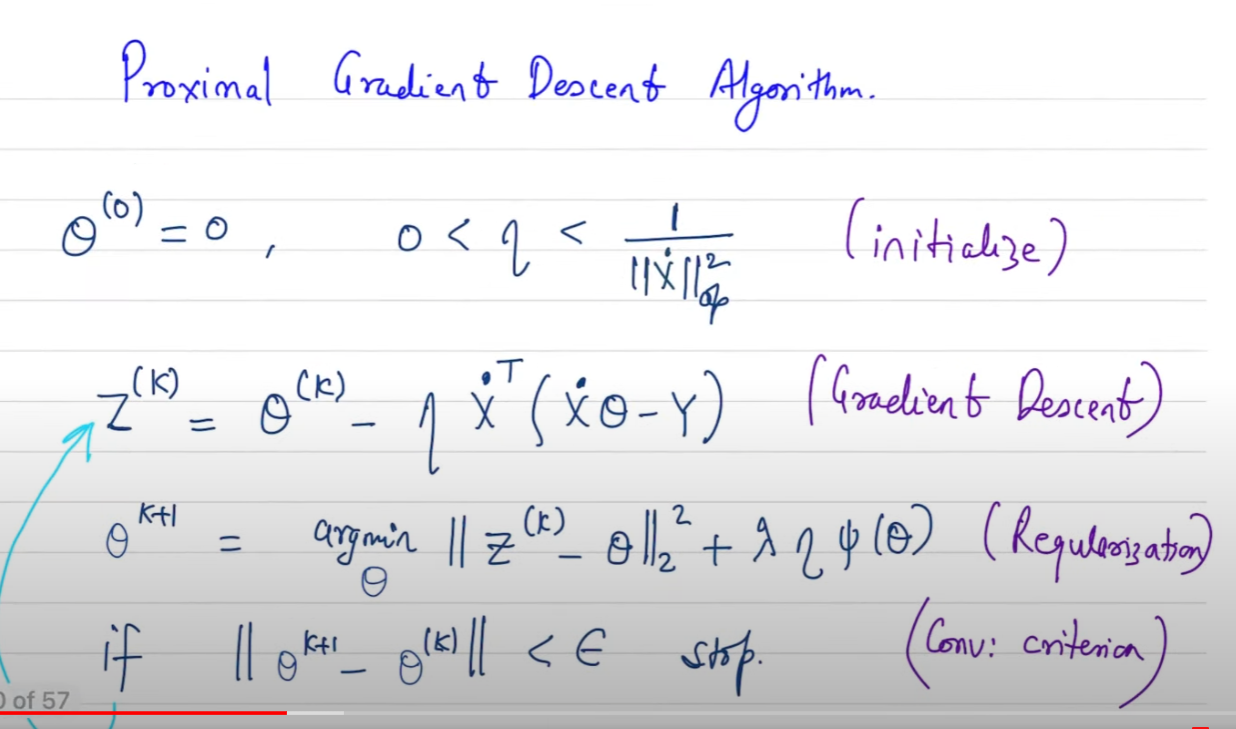 Proximal Gradient Descent Algorithm.
θ^(0) = 0 , 0 < η < 1 / ||Ẋ||²_op (initialize)
Z^(K) = θ^(K) - η Ẋ^T (Ẋθ - Y) (Gradient Descent)
θ^K+1 = argmin_θ || Z^(K) - θ ||_2^2 + λ η ψ(θ) (Regularization)
if || θ^K+1 - θ^(K) || < ϵ stop. (Conv: criterion)
of 57